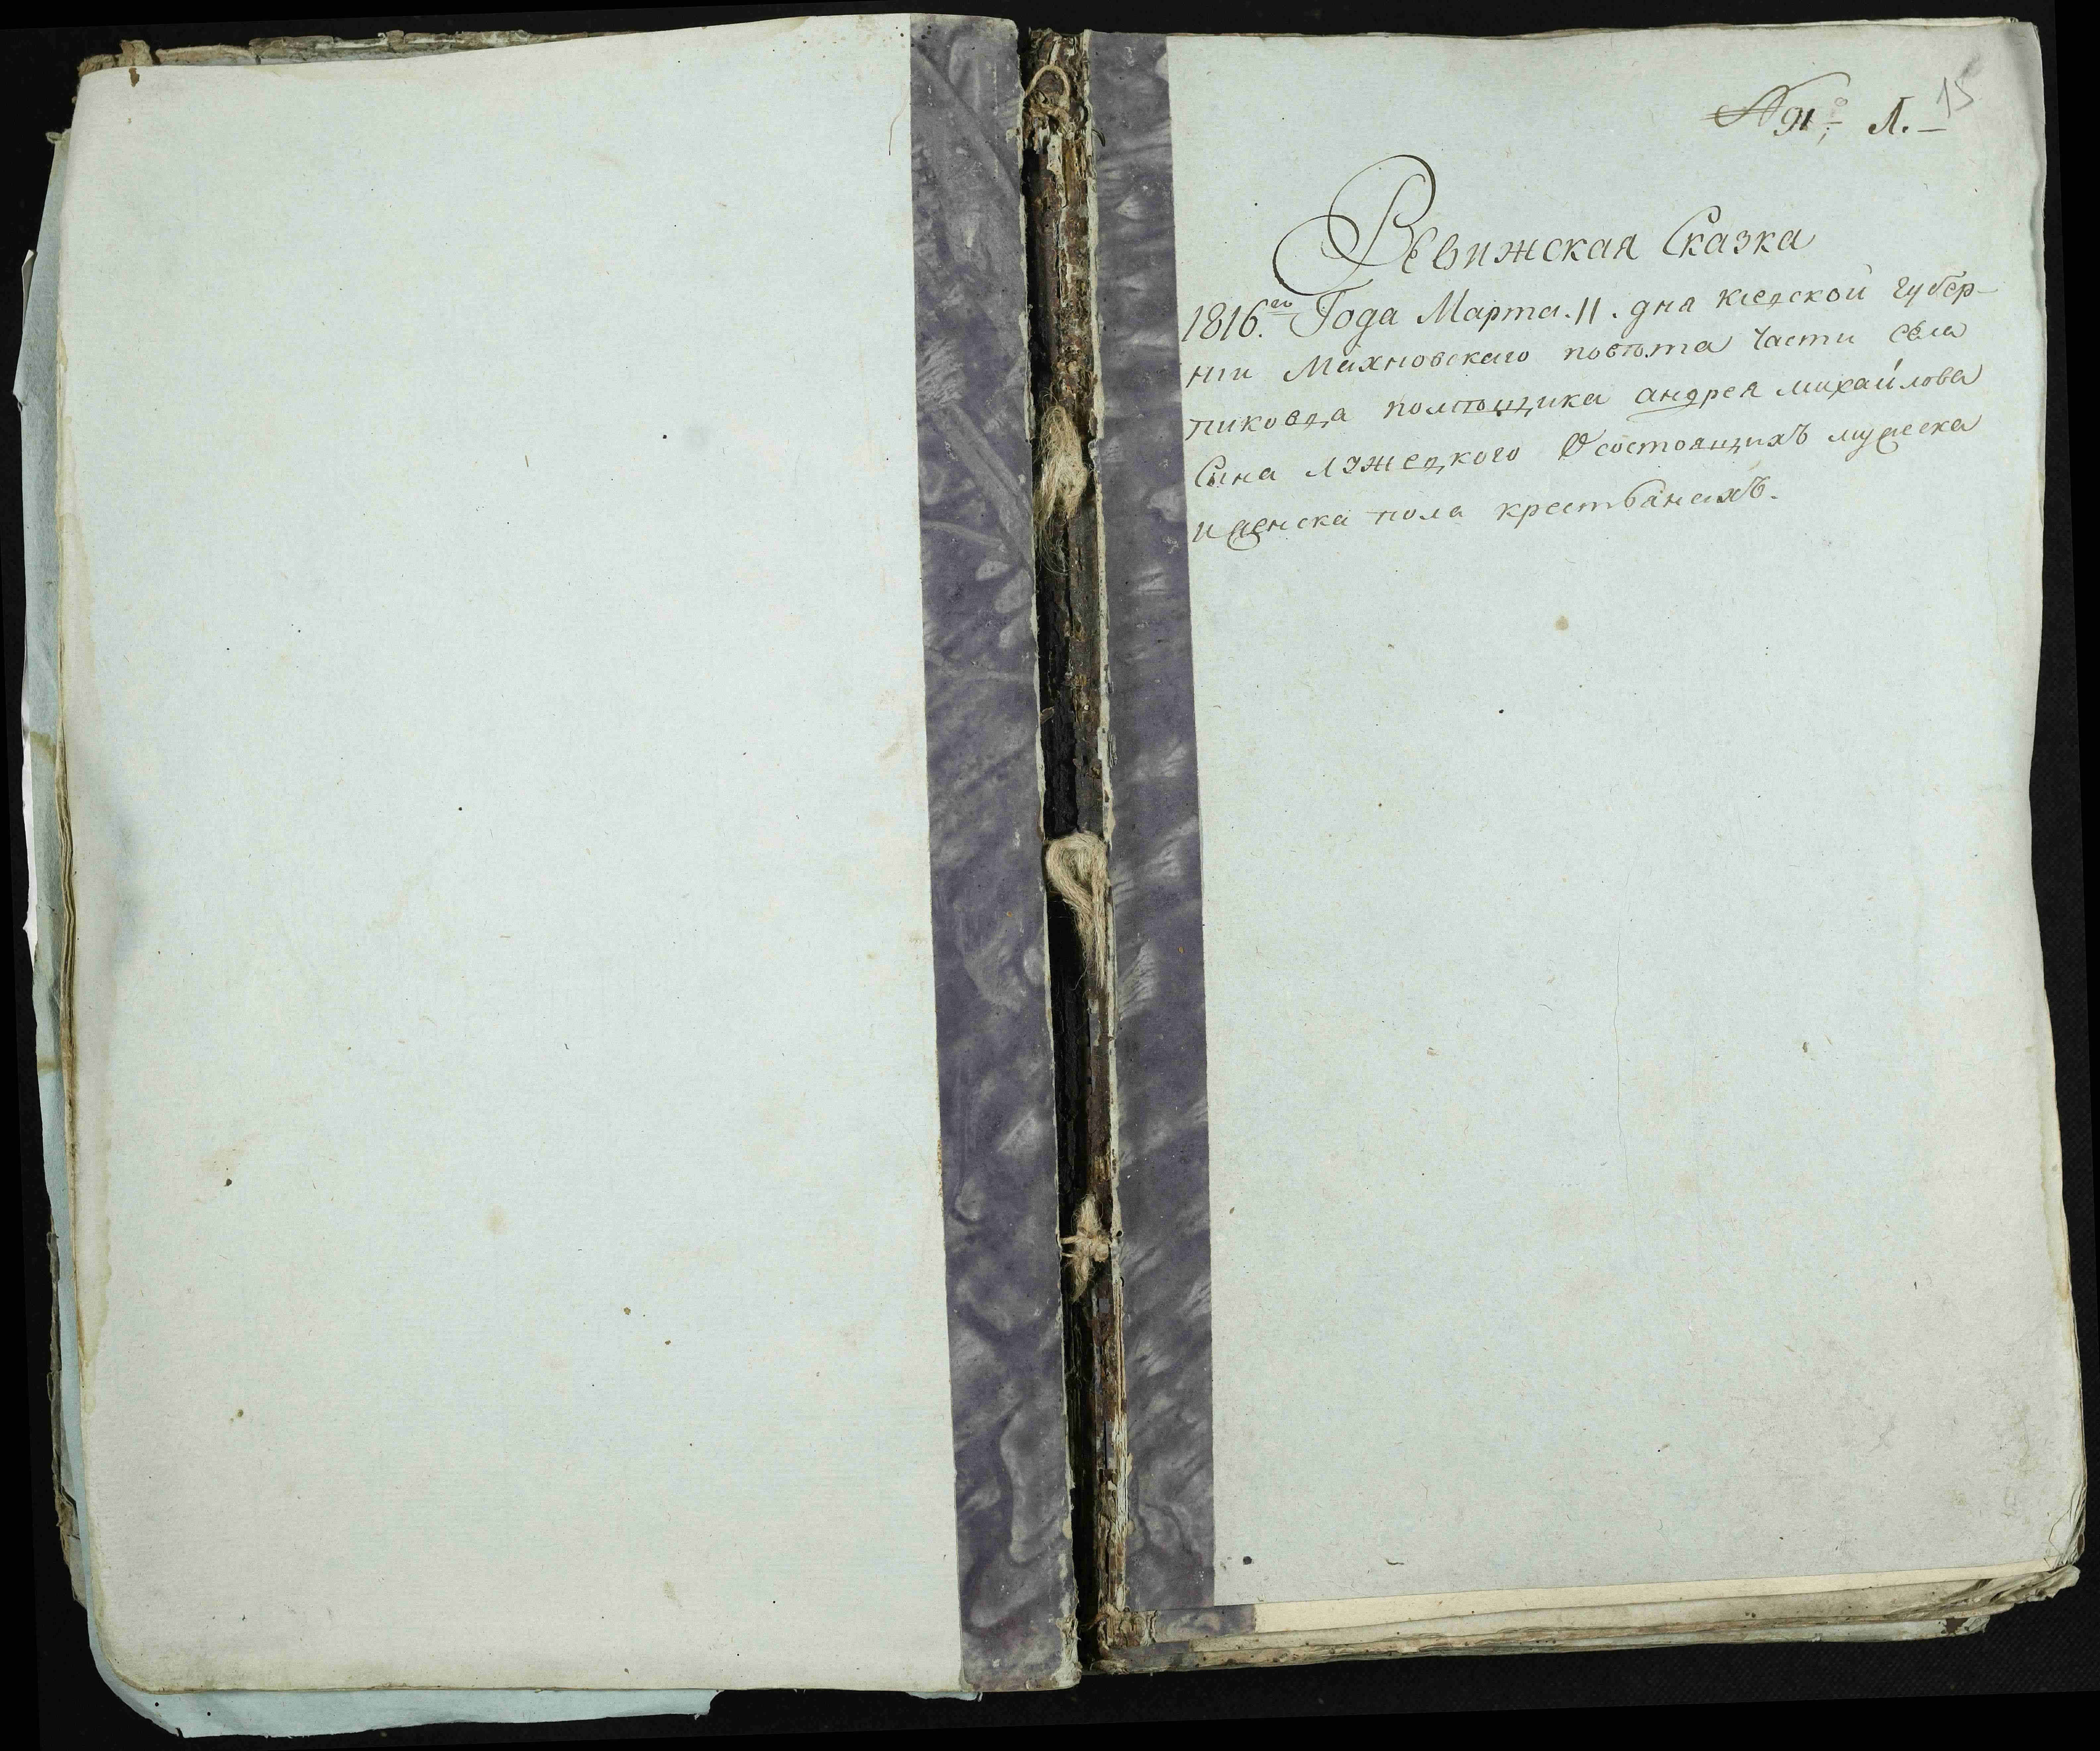 № 91; Л. 15
Ревижская Сказка
1816.го Года Марта. 11. дня киевской губер-
нии Махновскаго повѣта части села
пиковца помѣщика андрея михайлова
Сына О состоящихъ мужеска
и женска пола крестьянахъ.